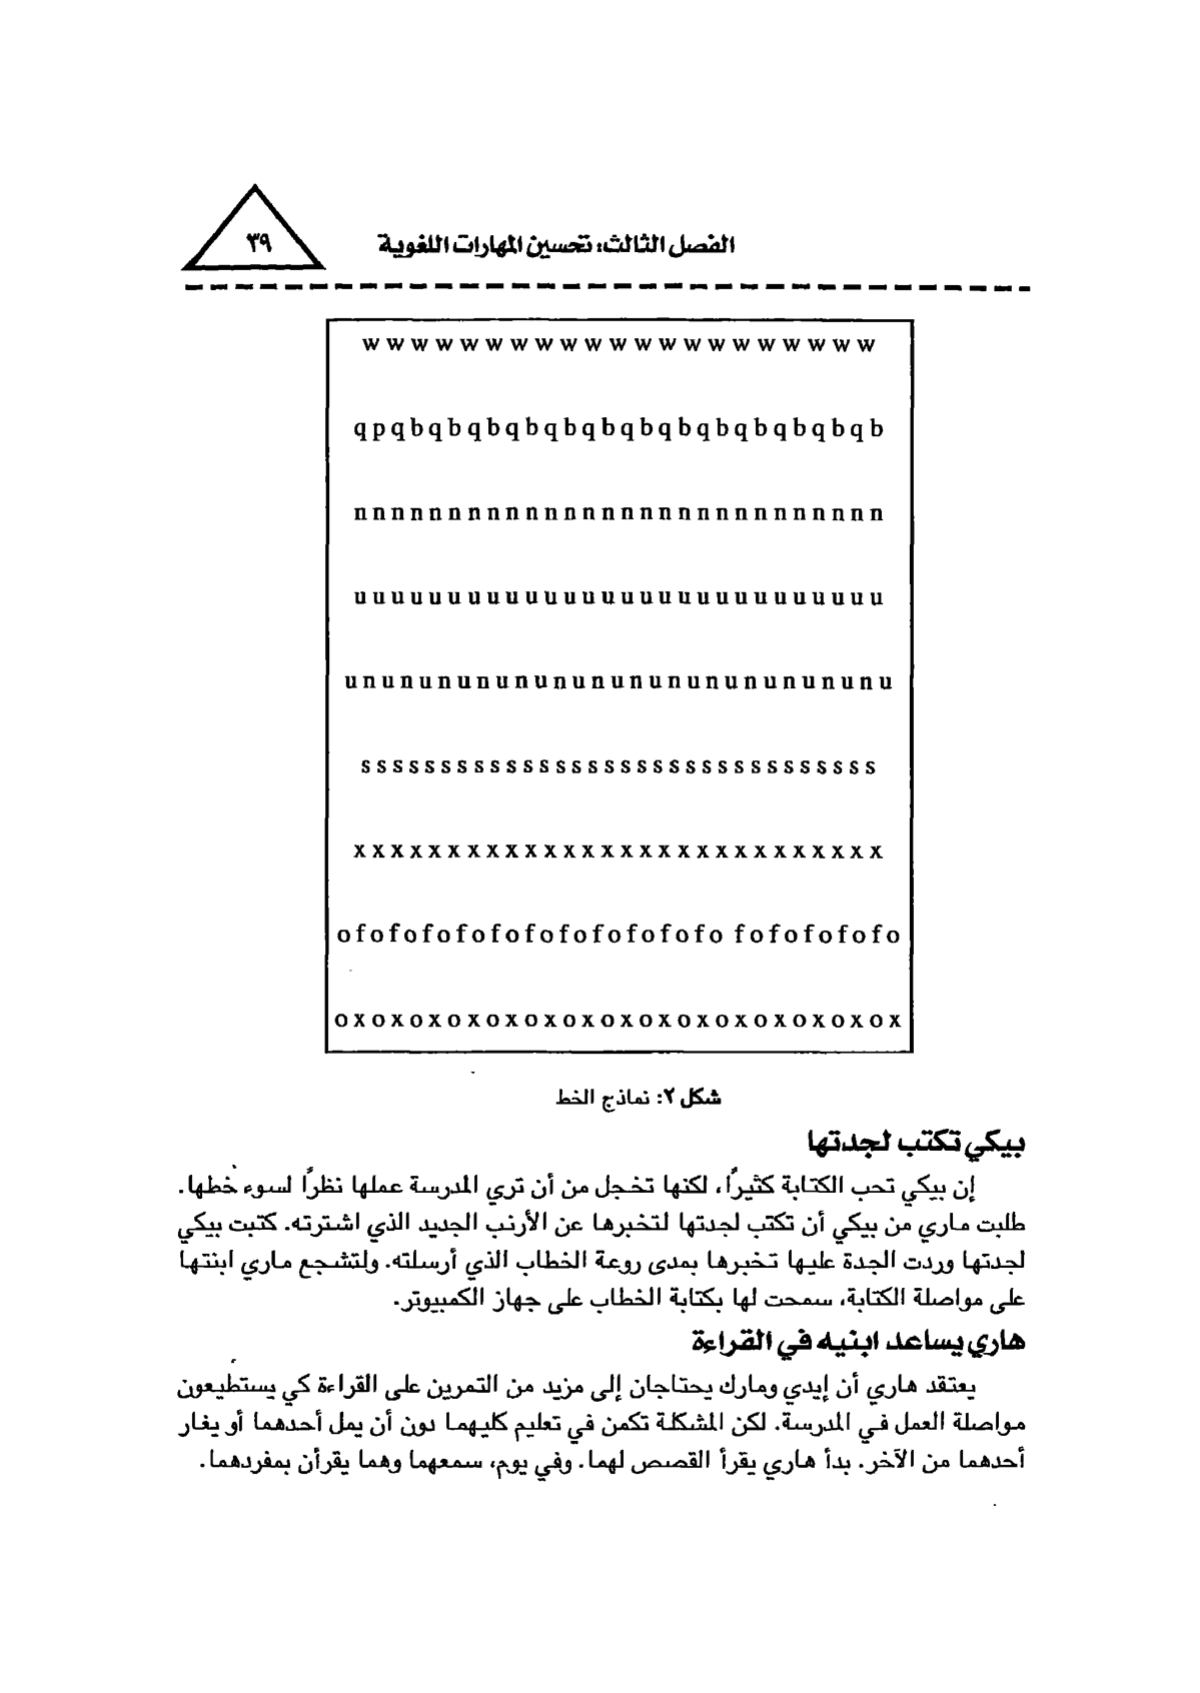 الفصل الثالث: تحسين المهارات اللغوية
٣٩
w w w w w w w w w w w w w w w w w w w w w
q p q b q b q b q b q b q b q b q b q b q b q b q b q b
n n n n n n n n n n n n n n n n n n n n n n n n n n n n
u u u u u u u u u u u u u u u u u u u u u u u u u u u u
u n u n u n u n u n u n u n u n u n u n u n u n u n u n u
s s s s s s s s s s s s s s s s s s s s s s s s s s s s s s s s
x x x x x x x x x x x x x x x x x x x x x x x x x x x x
o f o f o f o f o f o f o f o f o f o f o f o f o f o f o f o f o
o x o x o x o x o x o x o x o x o x o x o x o x o x o x o x
شكل ٢: نماذج الخط
بيكي تكتب لجدتها
إن بيكي تحب الكتابة كثيرًا، لكنها تخجل من أن تري المدرسة عملها نظرًا لسوء خطها.
طلبت ماري من بيكي أن تكتب لجدتها لتخبرها عن الأرنب الجديد الذي اشترته. كتبت بيكي
لجدتها وردت الجدة عليها تخبرها بمدى روعة الخطاب الذي أرسلته. ولتشجع ماري ابنتها
على مواصلة الكتابة، سمحت لها بكتابة الخطاب على جهاز الكمبيوتر.
هاري يساعد ابنيه في القراءة
يعتقد هاري أن إيدي ومارك يحتاجان إلى مزيد من التمرين على القراءة كي يستطيعون
مواصلة العمل في المدرسة. لكن المشكلة تكمن في تعليم كليهما دون أن يمل أحدهما أو يغار
أحدهما من الآخر. بدأ هاري يقرأ القصص لهما. وفي يوم، سمعهما وهما يقرأن بمفردهما.